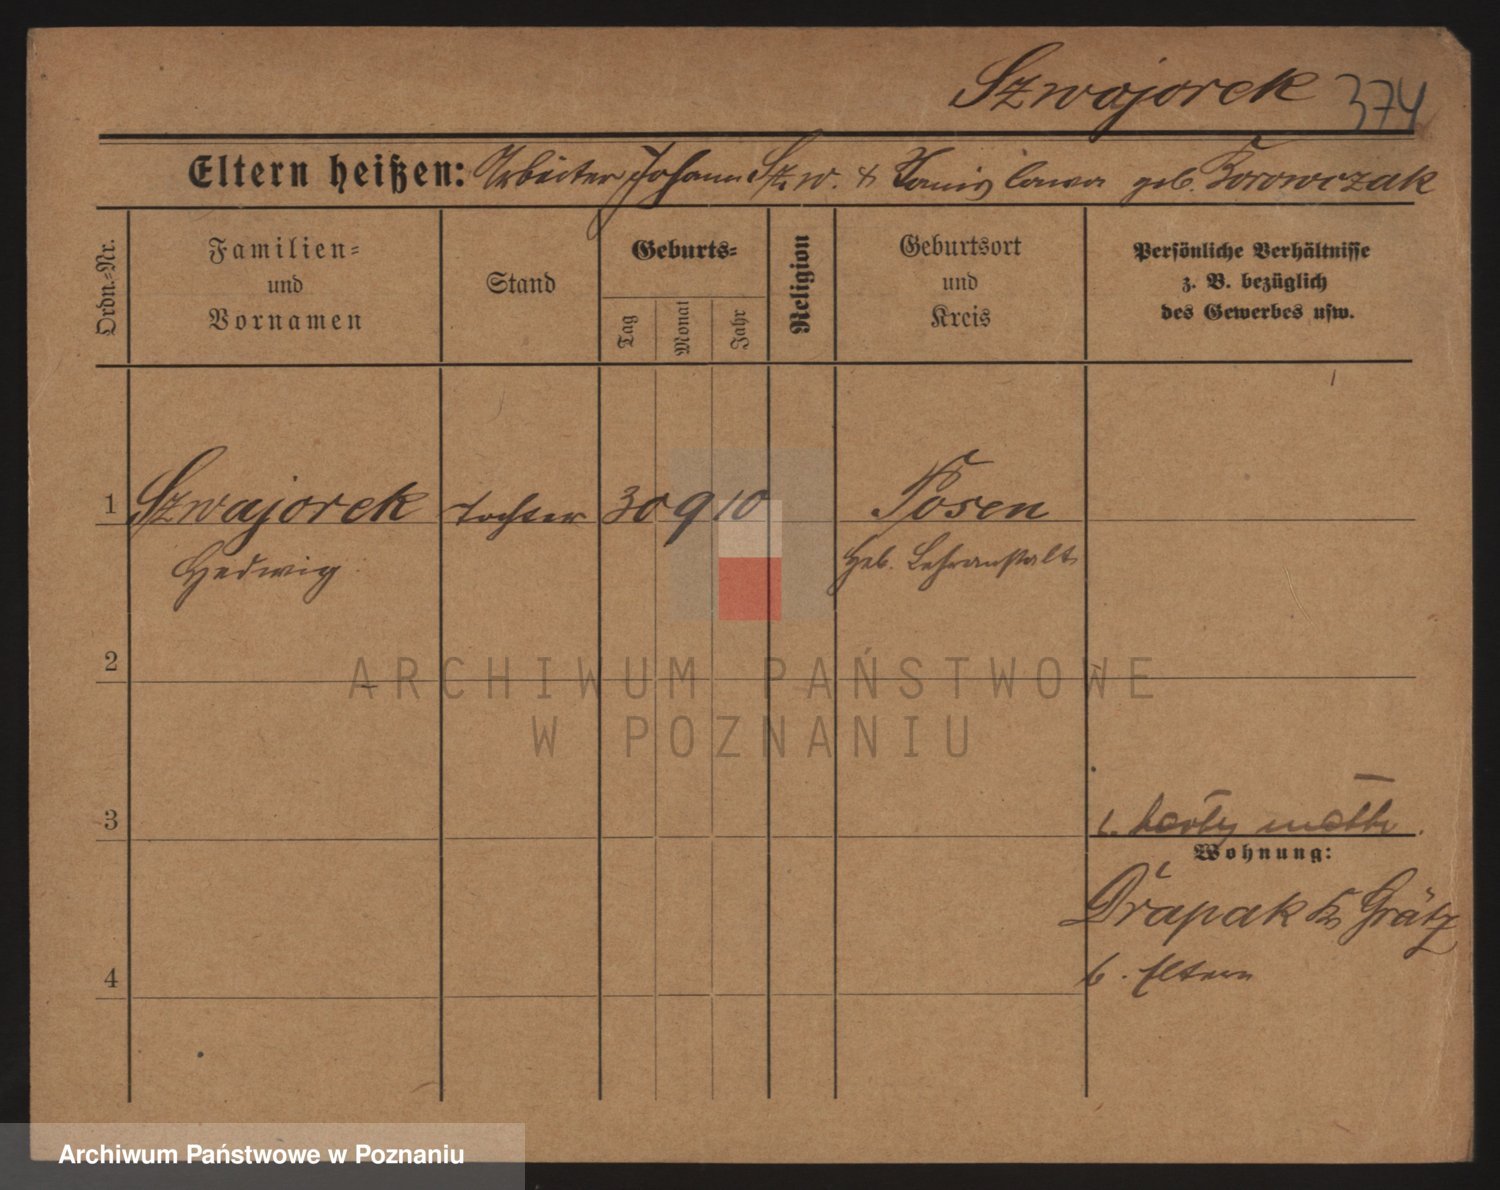 Szwajorek 374
Eltern heißen: Arbeiter Johann Szw. & Stanislawa geb. Borowczak
Ordn.-Nr.
Familien-
und
Vornamen
Stand
Geburts-
Tag
Monat
Jahr
Religion
Geburtsort
und
Kreis
Persönliche Verhältnisse
z. B. bezüglich
des Gewerbes usw.
1 Szwajorek Tochter 30 9 10 Posen
Hedwig Heb. Lehranstalt
2
3
Wohnung:
Drapak Kr Grätz
4 b. Eltern
ARCHIWUM PAŃSTWOWE
W POZNANIU
Archiwum Państwowe w Poznaniu